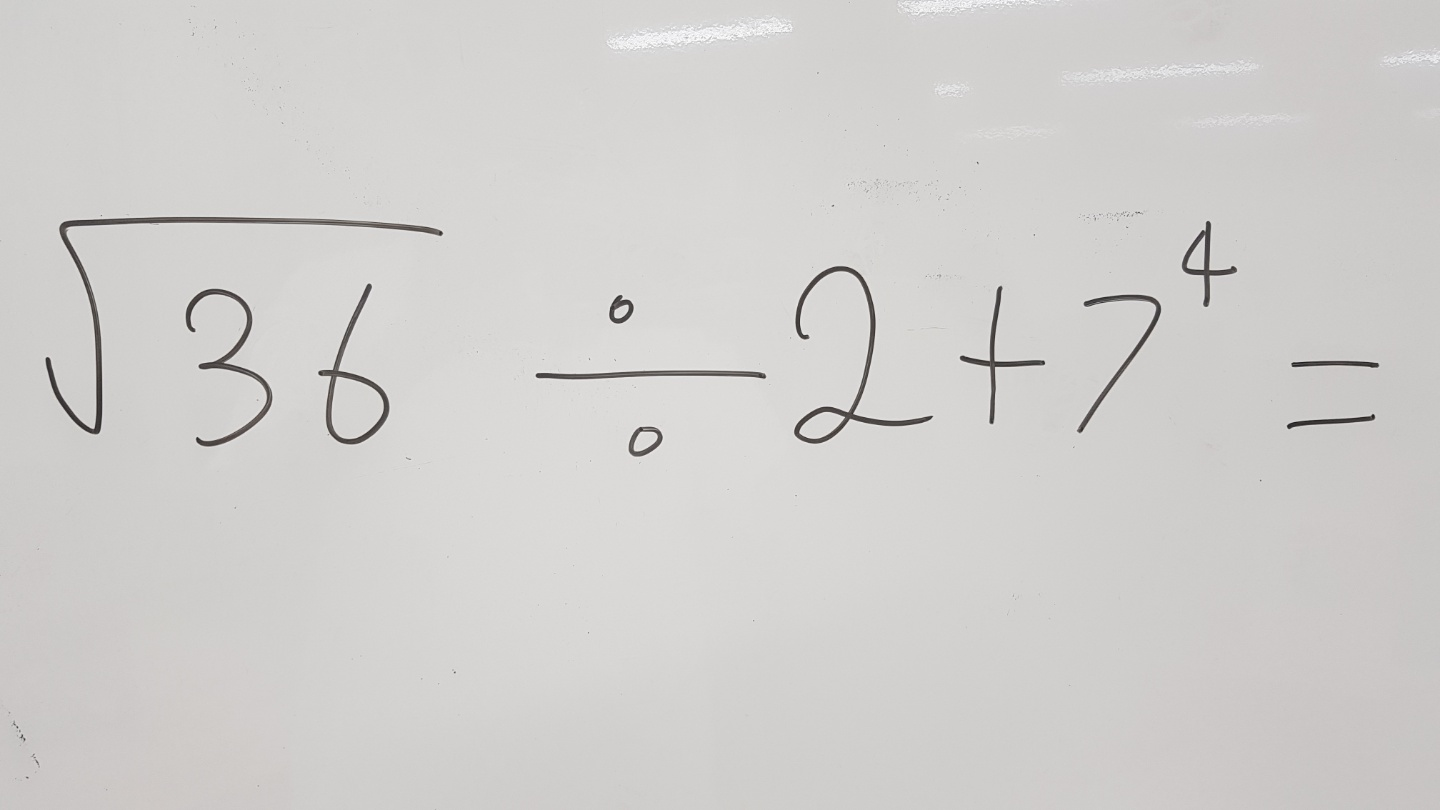 √36 ÷ 2 + 7⁴ =